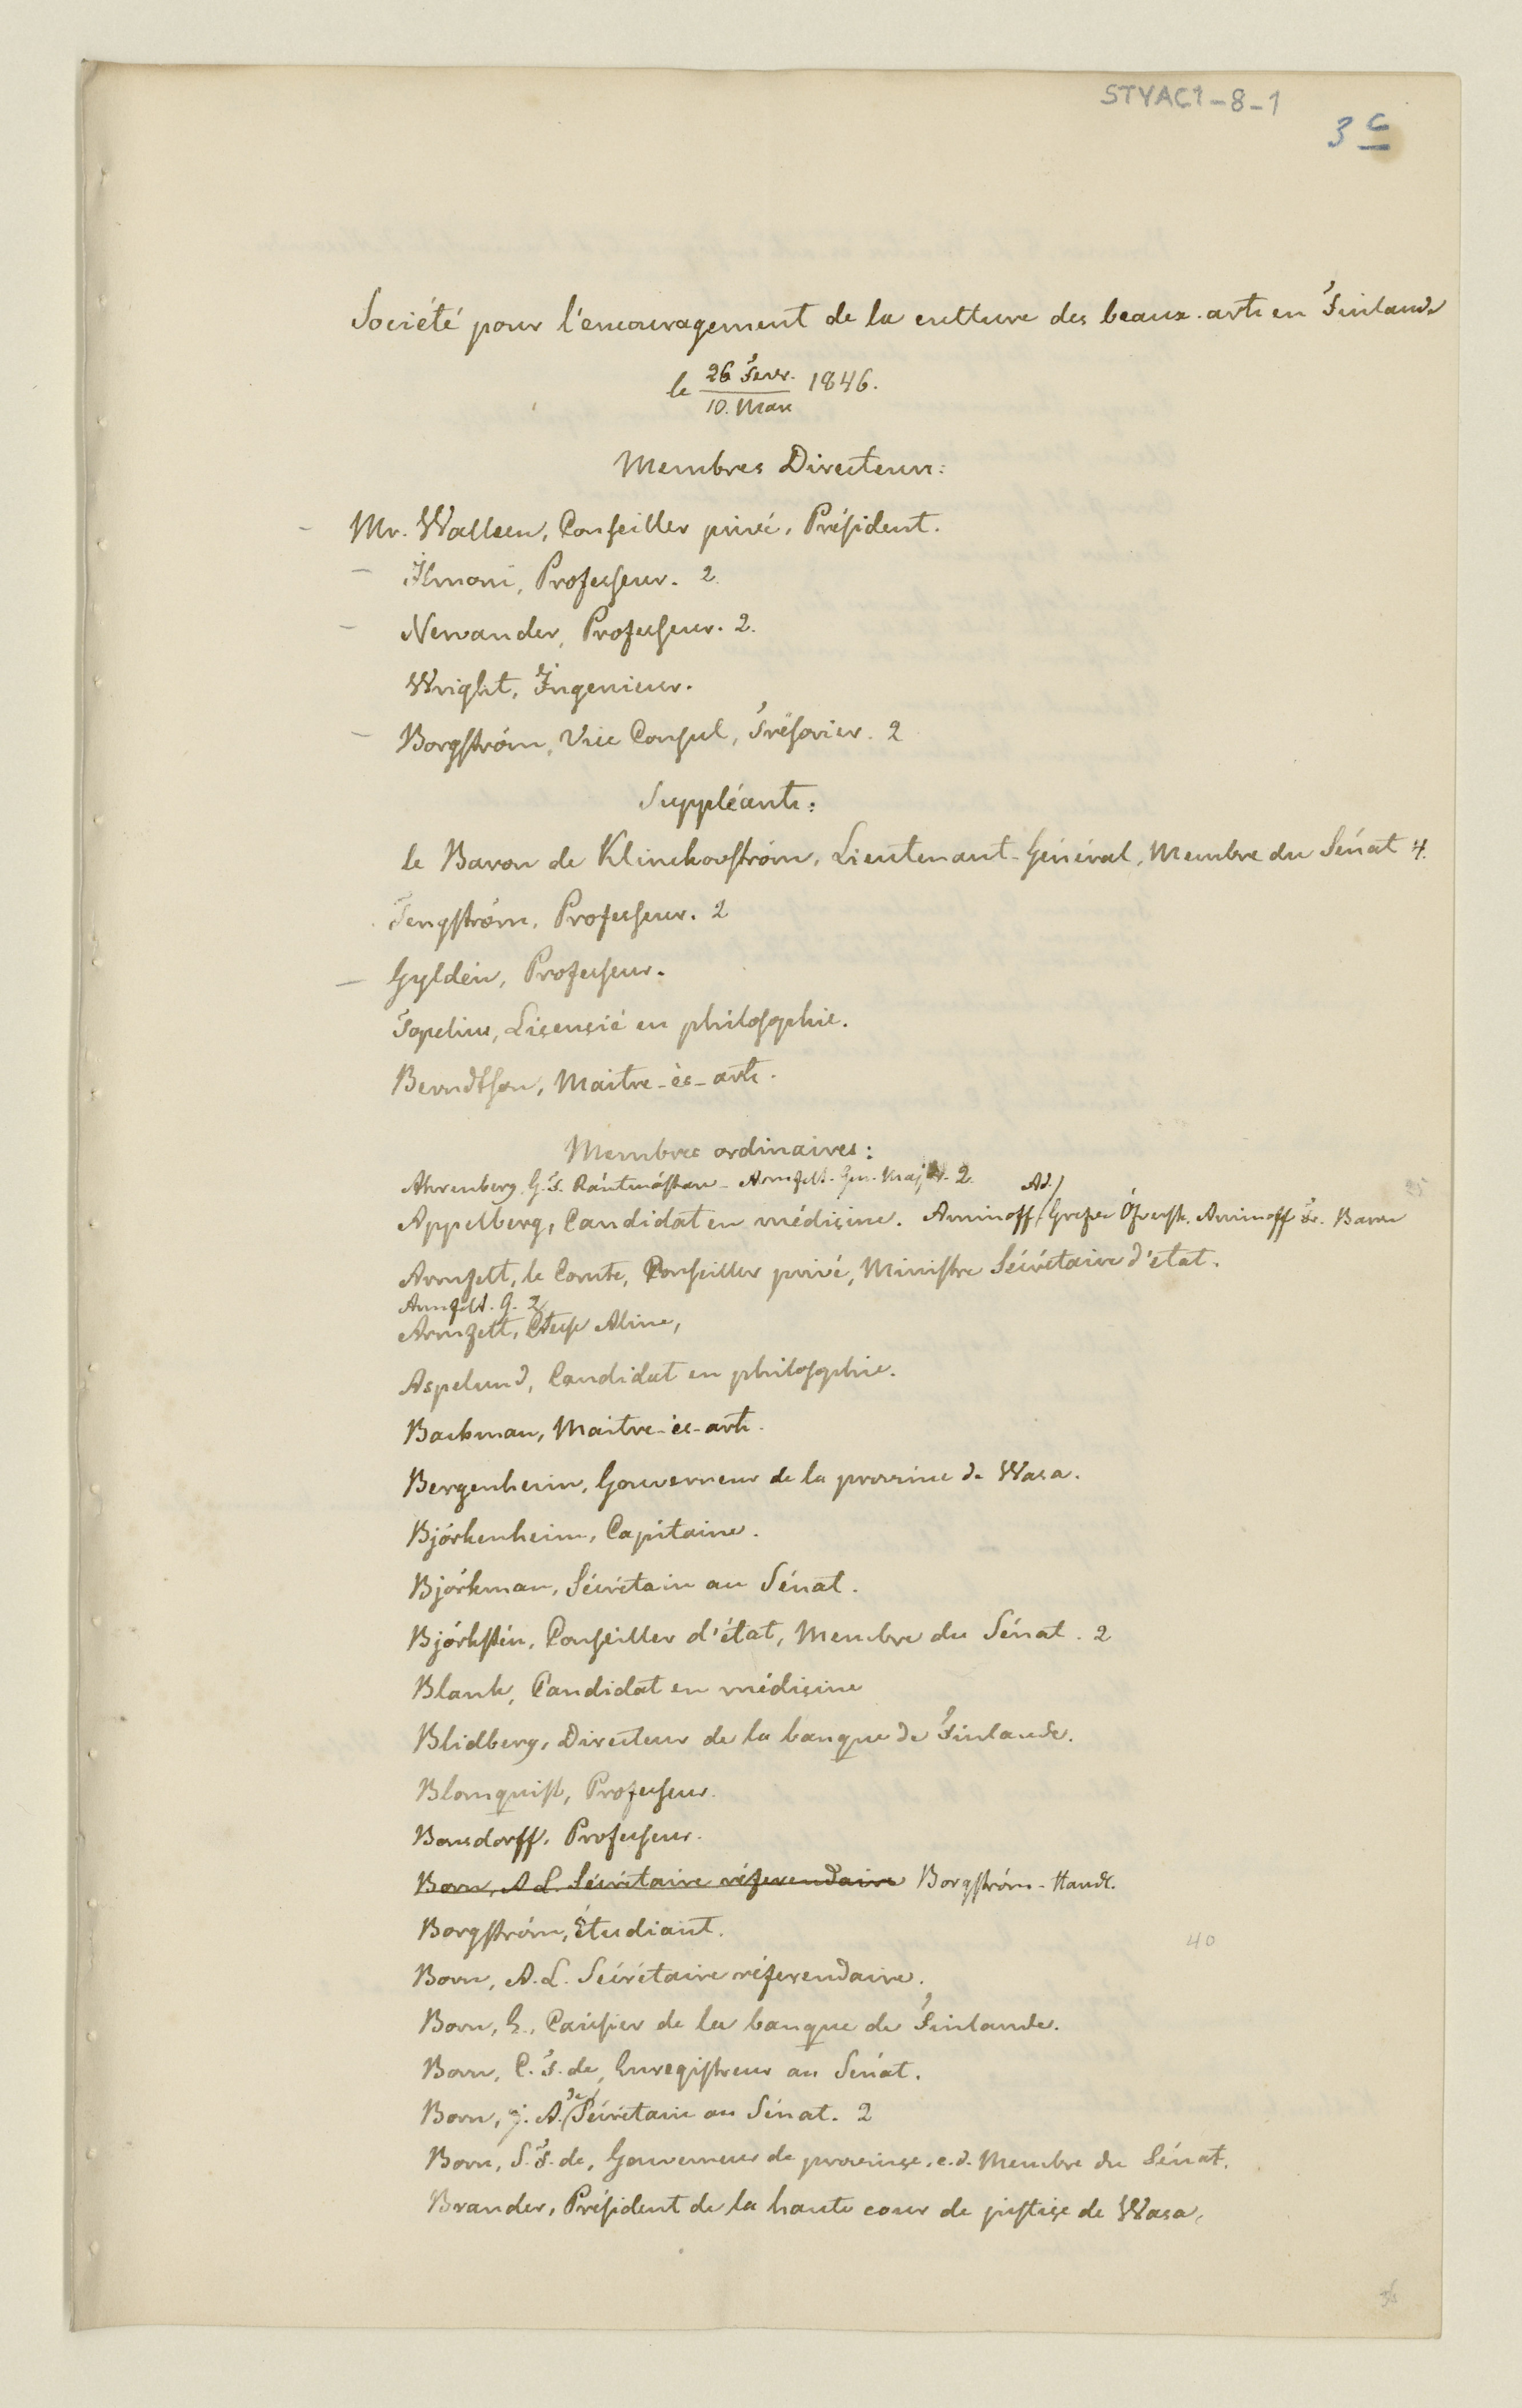 STYAC1-8-1
3 c
Société pour l'encouragement de la culture des beaux-arts en Finlande
le 26 Fevr. / 10. Mars 1846.
Membres Directeurs:
- Mr. Walleen, Conseiller privé, Président.
- Ilmoni, Professeur. 2.
- Nervander, Professeur. 2.
Wright, Ingenieur.
- Borgström, Vice Consul, Trésorier. 2
Suppléants:
le Baron de Klinckowström, Lieutenant-Général, Membre du Sénat 4.
Tengström, Professeur. 2
- Gyldén, Professeur.
Topelius, Liçençié en philosophie.
Berndtson, Maitre-ès-arts.
Membres ordinaires:
Ahrenberg. G. F. Räntmästare - Armfelt. Gen. Major. 2.
Ad.
Appelberg, Candidat en médiçine. Aminoff, Grefve Öfverst. Aminoff Fr. Baron
25
Armfelt, le Comte, Conseiller privé, Ministre Sécrétaire d'état.
Armfelt. G. 2
Armfelt, Ctesse Aline,
Aspelund, Candidat en philosophie.
Backman, Maitre-ès-arts.
Bergenheim, Gouverneur de la province de Wasa.
Björkenheim, Capitaine.
Björkman, Sécrétaire au Sénat.
Björkstén, Conseiller d'état, Membre du Sénat. 2
Blank, Candidat en médiçine
Blidberg, Directeur de la banque de Finlande.
Blomquist, Professeur.
Bonsdorff, Professeur.
Born, A. L. Sécrétaire réferendaire Borgström - Handl.
Borgström, Étudiant.
40
Born, A. L. Sécrétaire réferendaire.
Born, E., Caissier de la banque de Finlande.
Born, C. F. de, Enregistreur au Sénat.
de
Born, J. A. Sécrétaire au Sénat. 2
Born, S. F. de, Gouverneur de provinçe, c.d. Membre du Sénat.
Brander, Président de la haute cour de justiçe de Wasa,